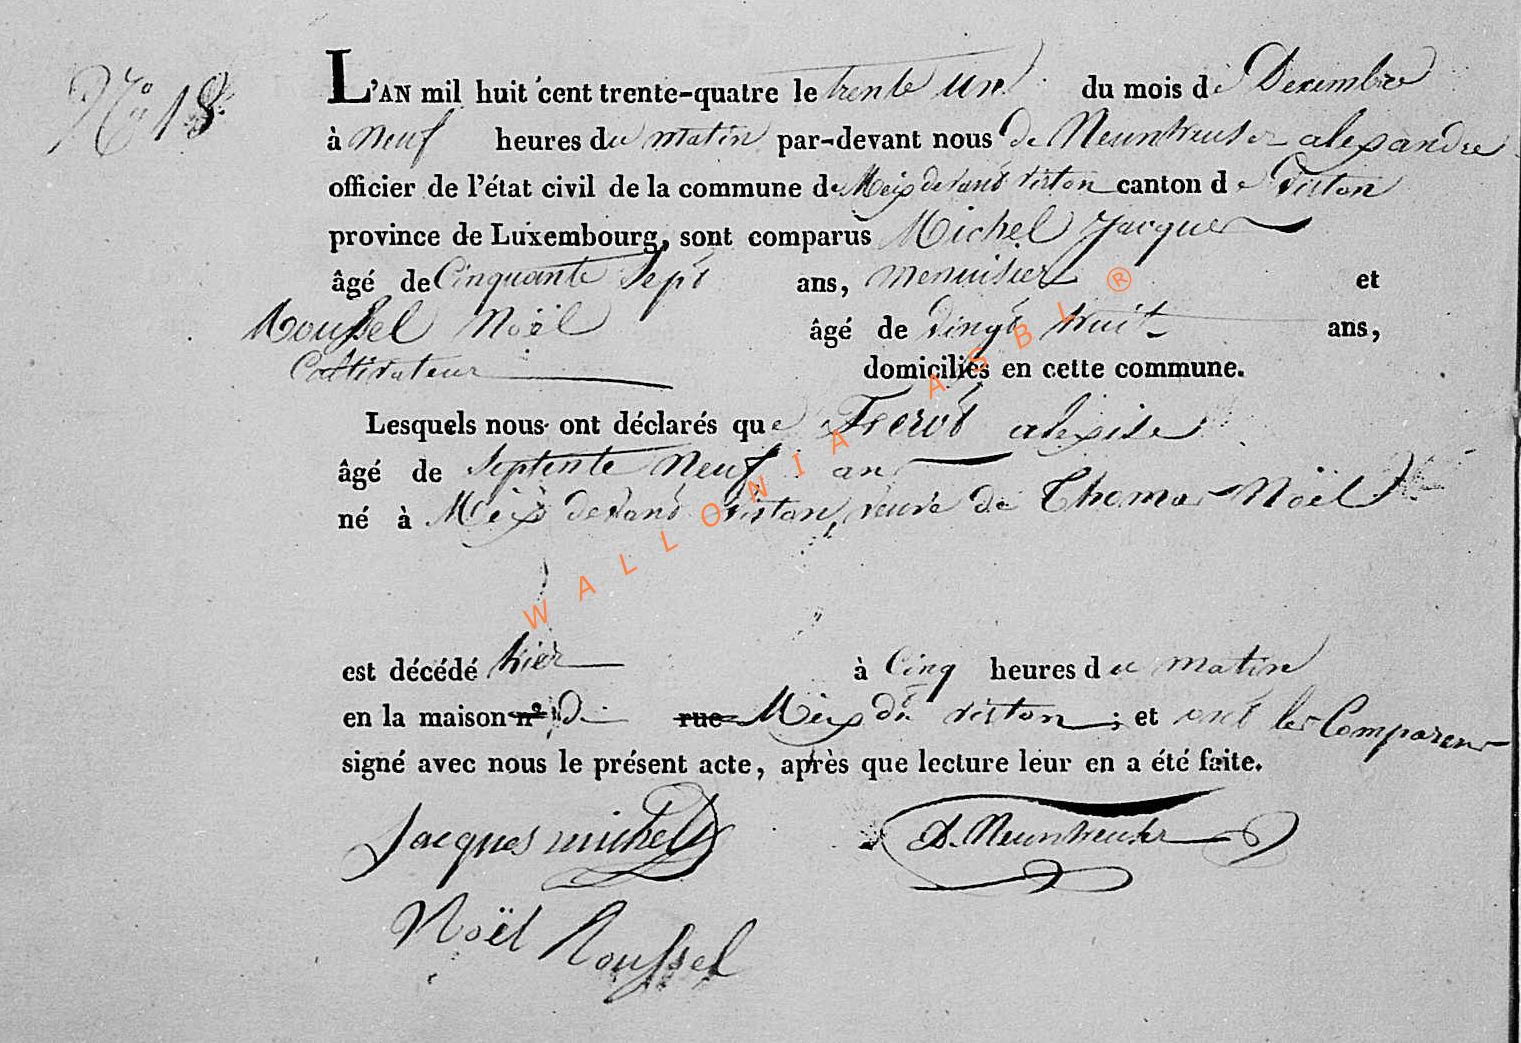 No 18.
L'AN mil huit cent trente-quatre le trente un du mois de Decembre
à neuf heures du matin par-devant nous de Neunheuser alexandre
officier de l'état civil de la commune de Meix devant virton canton de virton
province de Luxembourg, sont comparus Michel Jacques
âgé de Cinquante Sept ans, menuisier et
Roussel Noël âgé de vingt huit ans,
Cultivateur domiciliés en cette commune.
Lesquels nous ont déclarés que alexise
âgé de septente neuf ans
né à Meix devant virton, veuve de Thomas Noël
est décédé hier à Cinq heures du matin
en la maison n° De rue Meix dt virton; et ont les Comparens
signé avec nous le présent acte, après que lecture leur en a été faite.
Jacques michel D. Neunheuser
Noël Roussel
WALLONIA ASBL ®